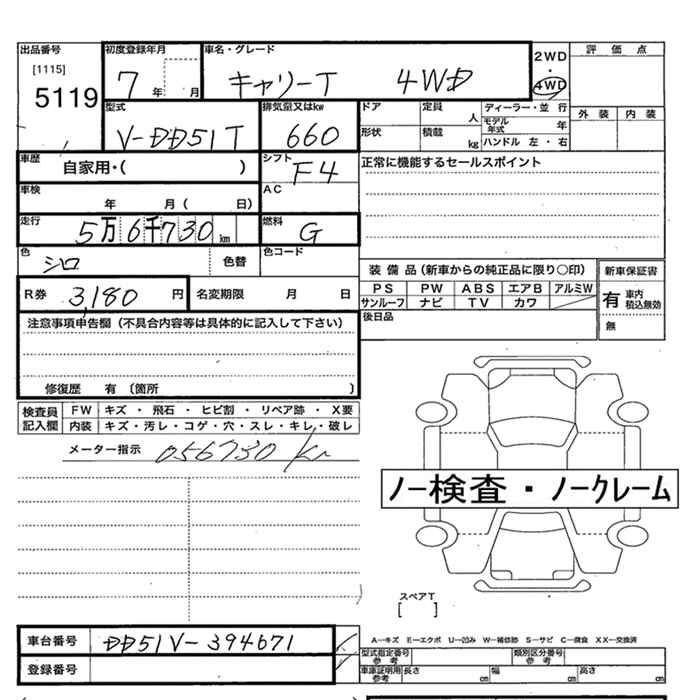 出品番号 初度登録年月 車名・グレード 2WD 評価点
[1115] 7 年 月 キャリーT 4WD ・
5119 4WD
型式 排気量又はkw ドア 定員 人 ディーラー・並行 外装 内装
V-DD51T 660 形状 積載 kg モデル年式 年
ハンドル 左・右
車歴 自家用・( ) シフト F4 正常に機能するセールスポイント
車検 年 月( 日) AC
走行 5万6千730km 燃料 G
色 シロ 色替 色コード 装備品(新車からの純正品に限り○印) 新車保証書
R券 3,180円 名変期限 月 日 PS PW ABS エアB アルミW 有 車内積込無効
サンルーフ ナビ TV カワ 無
後日品
注意事項申告欄(不具合内容等は具体的に記入して下さい)
修復歴 有 〔箇所 〕
検査員記入欄 FW キズ・飛石・ヒビ割・リペア跡・X要
内装 キズ・汚レ・コゲ・穴・スレ・キレ・破レ
メーター指示 056730 km
ノー検査・ノークレーム
スペアT
[ ]
車台番号 DD51V-394671 A—キズ E—エクボ U—凹み W—補修跡 S—サビ C—腐食 XX—交換済
型式指定番号 参考 類別区分番号 参考
登録番号 車庫証明用 参考 長さ cm 幅 cm 高さ cm